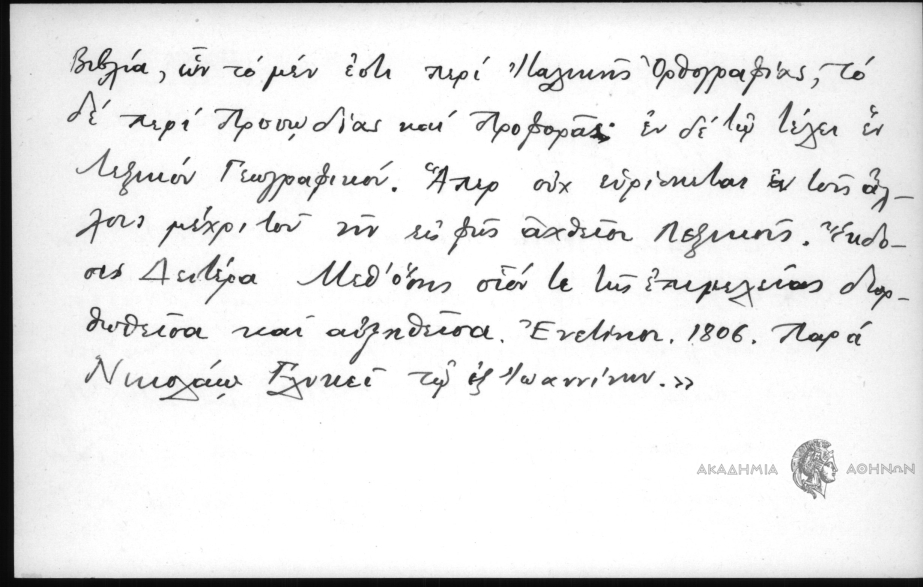 Βιβλία, ὧν τό μέν ἐστι περί Ἰταλικῆς Ὀρθογραφίας, τό
δέ περί Προσῳδίας καί Προφορᾶς· ἐν δέ τῷ τέλει ἕν
Λεξικόν Γεωγραφικόν. Ἅπερ οὐχ εὑρίσκεται ἐν τοῖς ἄλ-
λοις μέχρι τοῦ νῦν εἰς φῶς ἀχθεῖσι Λεξικοῖς. Ἔκδο-
σις Δευτέρα Μεθ' ὅσης οἷόν τε τῆς ἐπιμελείας διορ-
θωθεῖσα καί αὐξηθεῖσα. Ἐνετίησι. 1806. Παρά
Νικολάῳ Γλυκεῖ τῷ ἐξ Ἰωαννίνων.»
ΑΚΑΔΗΜΙΑ ΑΘΗΝΩΝ